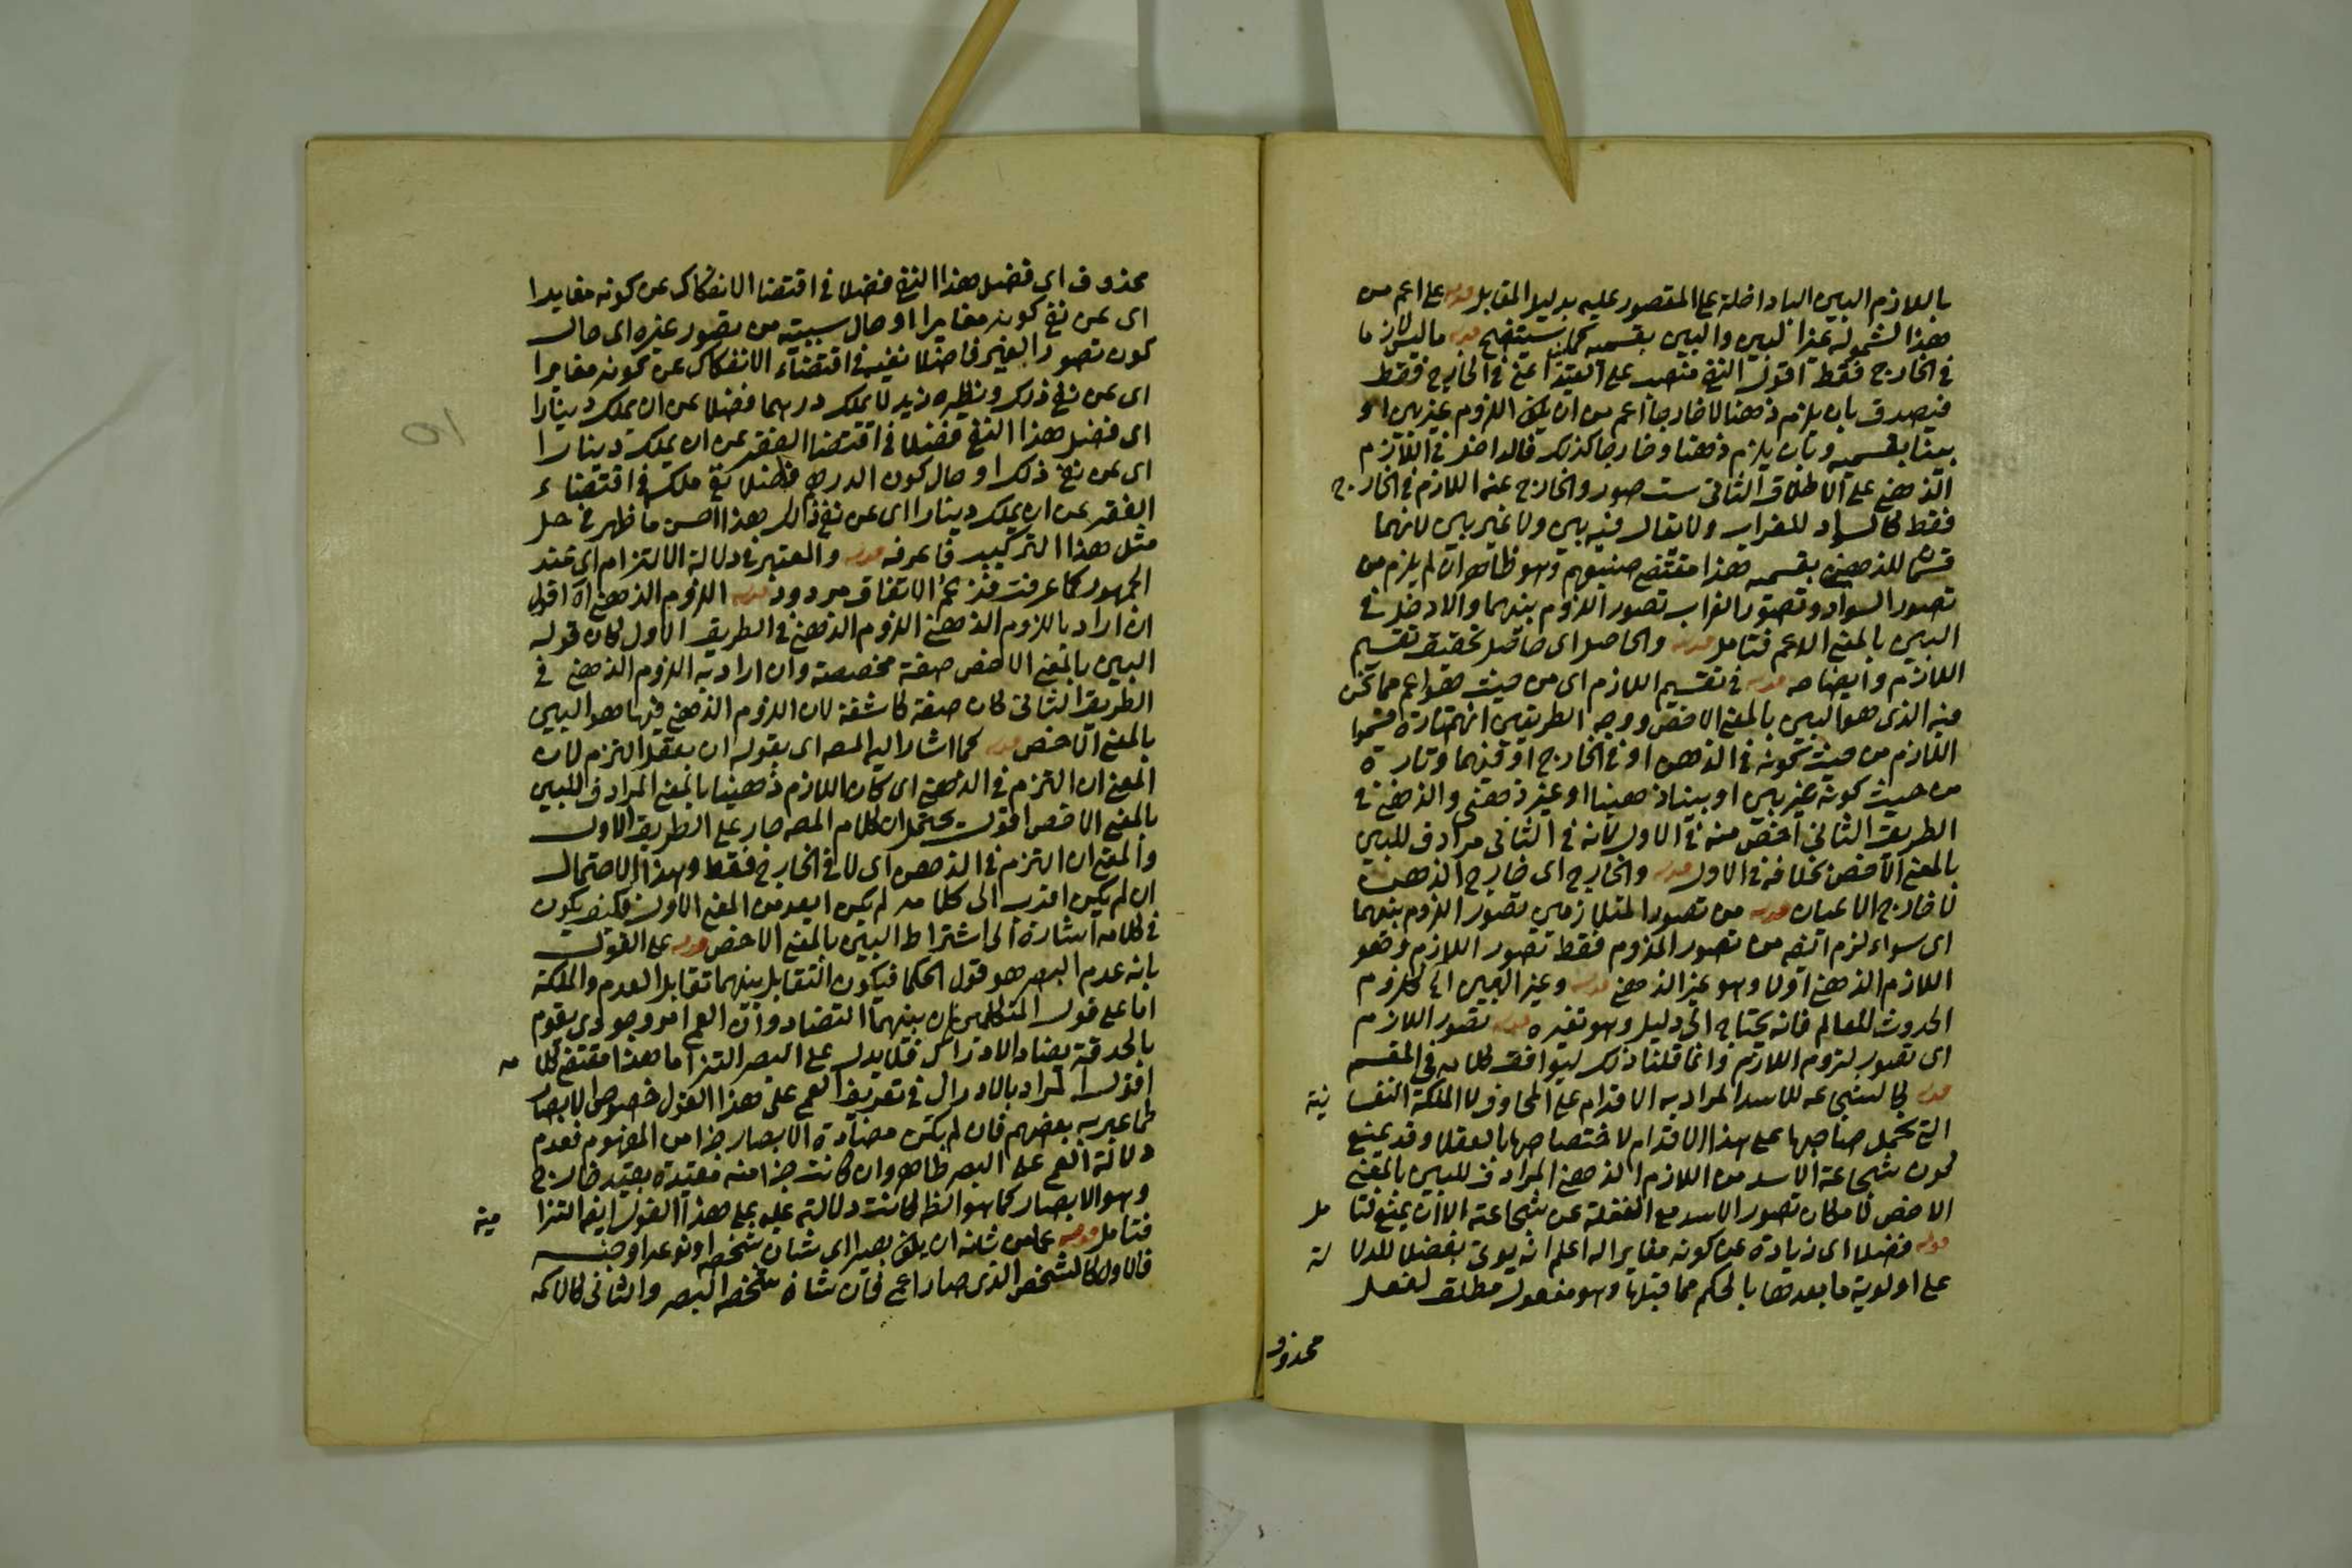 باللازم البين الباء داخلة على المقصور عليه بدليل المقابل قوله على اعم من
هذا لشموله غير البين والبين بقسميه كما ستتضح قوله ما ليس لازما
في الخارج فقط اقول النفي منصب على القيد اعني في الخارج فقط
فيصدق بان يلزم ذهنا لا خارجا اعم من ان يكون اللزوم غير بين او
بينا بقسميه وبان يلزم ذهنا وخارجا كذلك فالداخل في اللازم
الذهني على الاطلاق الثاني ست صور والخارج عنه اللازم في الخارج
فقط كالسواد للغراب ولا يقال فيه بين ولا غير بين لانهما
قسمان للذهني بقسميه هذا مقتضى صنيعهم وهو ظاهر ان لم يلزم من
تصور السواد وتصور الغراب تصور اللزوم بينهما والا دخل في
البين بالمعنى الاعم فتامل قوله والحاصل اى حاصل تحقيق تقسيم
اللازم وايضاحه قوله في تقسيم اللازم اى من حيث هو اعم مما نحن
فيه الذى هو البين بالمعنى الاخص ووجه الطريقين انهم تارة قسموا
اللازم من حيث كونه في الذهن او في الخارج او فيهما وتارة
من حيث كونه غير بين او بينا ذهنيا او غير ذهنى والذهني في
الطريق الثاني اخص منه في الاول لانه في الثاني مرادف للبين
بالمعنى الاخص بخلافه في الاول قوله والخارج اى خارج الذهن
لا خارج الاعيان قوله من تصور المتلازمين تصور اللزوم بينهما
اى سواء لزم ايضه من تصور الملزوم فقط تصور اللازم وهو
اللازم الذهني اولا وهو غير الذهني قوله وغير البين اى كلزوم
الحدوث للعالم فانه يحتاج الى دليل وهو تغيره قوله تصور اللازم
اى تصور لزوم اللازم وانما قلنا ذلك ليوافق كلامه في المقسم
قوله كالشجاعة للاسد المراد به الاقدام على المخاوف لا الملكة النفسانية
التى تحمل صاحبها على هذا الاقدام لاختصاصها بالعقلا وقد يمنع
كون شجاعة الاسد من اللازم الذهني المرادف للبين بالمعنى
الاخص لامكان تصور الاسد مع الغفلة عن شجاعته الا ان يمنع فتامل
قوله فضلا اى زيادة عن كونه مغايرا له اعلم انه يوتى بفضلا للدلالة
على اولوية ما بعدها بالحكم مما قبلها وهو مفعول مطلق لفعل
محذوف
محذوف اى فضل هذا النفي فضلا في اقتضا الانفكاك عن كونه مغايرا
اى عن نفي كونه مغايرا او حال سببية من تصور غيره اى حال
كون تصور الغير فاضلا نفيه في اقتضاء الانفكاك عن كونه مغايرا
اى عن نفي ذلك ونظيره زيد لا يملك درهما فضلا عن ان يملك دينارا
اى فضل هذا النفي فضلا في اقتضا الفقر عن ان يملك دينارا
اى عن نفي ذلك او حال كون الدرهم فاضلا نفي ملكه في اقتضاء
الفقر عن ان يملك دينارا اى عن نفي ذلك هذا احسن ما ظهر في حل
مثل هذا التركيب فاعرفه قوله والمعتبر في دلالة الالتزام اى عند
الجمهور كما عرفت فزعم الاتفاق مردود قوله اللزوم الذهني اه اقول
ان اراد باللزوم الذهني اللزوم الذهني في الطريق الاول كان قوله
البين بالمعنى الاخص صفة مخصصة وان اراد به اللزوم الذهني في
الطريق الثاني كان صفة كاشفة لان اللزوم الذهني فيها هو البين
بالمعنى الاخص قوله كما اشار اليه المصه اى بقوله ان بعقل التزم لان
المعنى ان التزم في الذهن اى كان اللازم ذهنيا بالمعنى المرادف للبين
بالمعنى الاخص اقول يحتمل ان كلام المصه جار على الطريق الاول
والمعنى ان التزم في الذهن اى لا في الخارج فقط وهذا الاحتمال
ان لم يكن اقرب الى كلامه لم يكن ابعد من المعنى الاول فكيف يكون
في كلامه اشارة الى اشتراط البين بالمعنى الاخص قوله على القول
بانه عدم البصر هو قول الحكما فيكون التقابل بينهما تقابل العدم والملكة
اما على قول المتكلمين بان بينهما التضاد وان العمى امر وجودى يقوم
بالحدقة يضاد الادراك فلا يدل على البصر التزاما هذا مقتضى كلامه
اقول المراد بالادراك في تعريف العمى على هذا القول خصوص الابصار
كما عبر به بعضهم فان لم يكن مضادة الابصار جزا من المفهوم فعدم
دلالة العمى على البصر ظاهر وان كانت جزا منه مقيدة بقيد خارج
وهو الابصار كما هو الظه كانت دلالته عليه على هذا القول ايضه التزامية
فتامل قوله عما من شانه ان يكون بصيرا اى شان شخصه او نوعه او جنسه
فالاول كالشخص الذى صار اعمى فان شان شخصه البصر والثاني كالاكمه